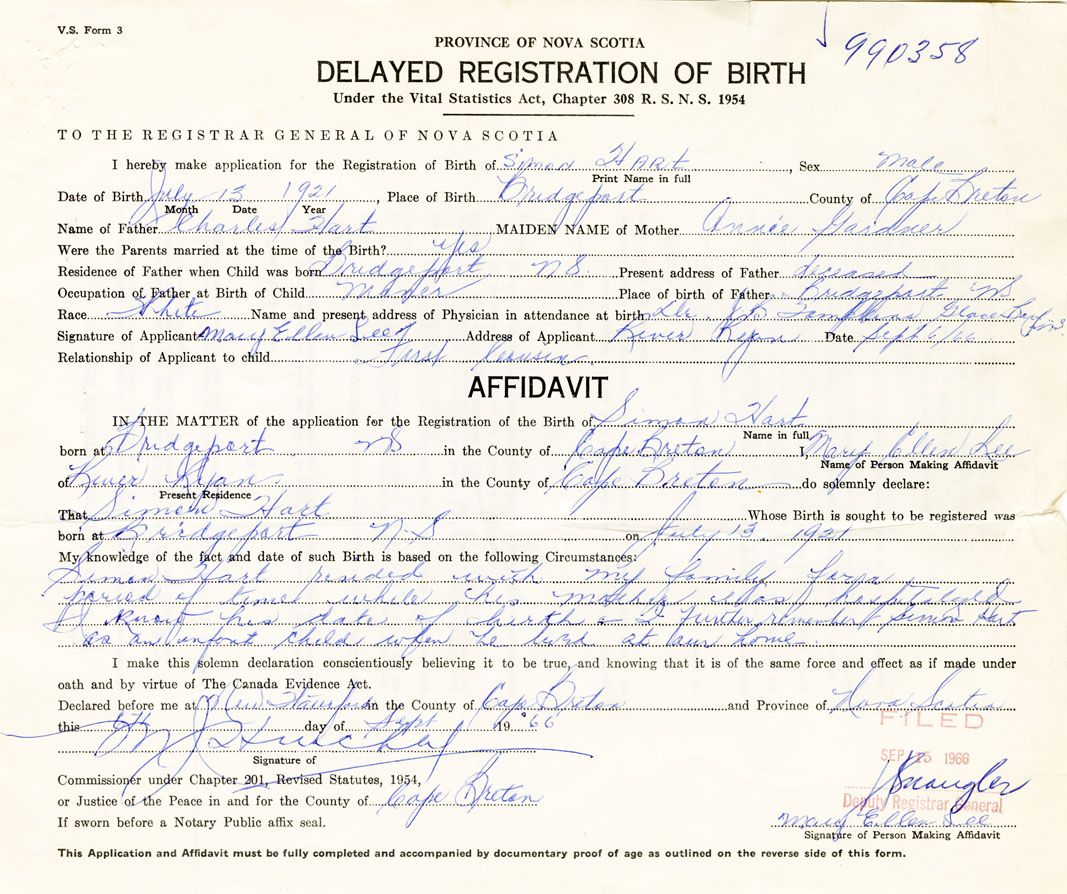 V.S. Form 3
990358
PROVINCE OF NOVA SCOTIA
DELAYED REGISTRATION OF BIRTH
Under the Vital Statistics Act, Chapter 308 R. S. N. S. 1954
TO THE REGISTRAR GENERAL OF NOVA SCOTIA
I hereby make application for the Registration of Birth of Simon HART, Sex Male
Print Name in full
Date of Birth July 13 1921, Place of Birth Bridgeport County of Cape Breton
Month Date Year
Name of Father Charles Hart MAIDEN NAME of Mother Annie Gardner
Were the Parents married at the time of the Birth? yes
Residence of Father when Child was born Bridgeport NS. Present address of Father deceased
Occupation of Father at Birth of Child Miner Place of birth of Father Bridgeport NS
Race White Name and present address of Physician in attendance at birth Dr.
Signature of Applicant Mary Ellen Lee Address of Applicant River Ryan Date Sept 6/66
Relationship of Applicant to child First Cousin
AFFIDAVIT
IN THE MATTER of the application for the Registration of the Birth of Simon Hart
Name in full
born at Bridgeport NS in the County of Cape Breton I, Mary Ellen Lee
Name of Person Making Affidavit
of River Ryan in the County of Cape Breton do solemnly declare:
Present Residence
That Simon Hart Whose Birth is sought to be registered was
born at Bridgeport N-S on July 13, 1921
My knowledge of the fact and date of such Birth is based on the following Circumstances:
Simon Hart resided with my family for a
period of time while his mother was hospitalized
I know his date of birth & I further remember Simon Hart
as an infant child when he lived at our home.
I make this solemn declaration conscientiously believing it to be true, and knowing that it is of the same force and effect as if made under
oath and by virtue of The Canada Evidence Act.
Declared before me at New Waterford in the County of Cape Breton and Province of Nova Scotia
this 6th day of Sept 19 66
FILED
SEP 15 1966
Signature of
Commissioner under Chapter 201, Revised Statutes, 1954,
or Justice of the Peace in and for the County of Cape Breton
Deputy Registrar General
If sworn before a Notary Public affix seal.
Mary Ellen Lee
Signature of Person Making Affidavit
This Application and Affidavit must be fully completed and accompanied by documentary proof of age as outlined on the reverse side of this form.